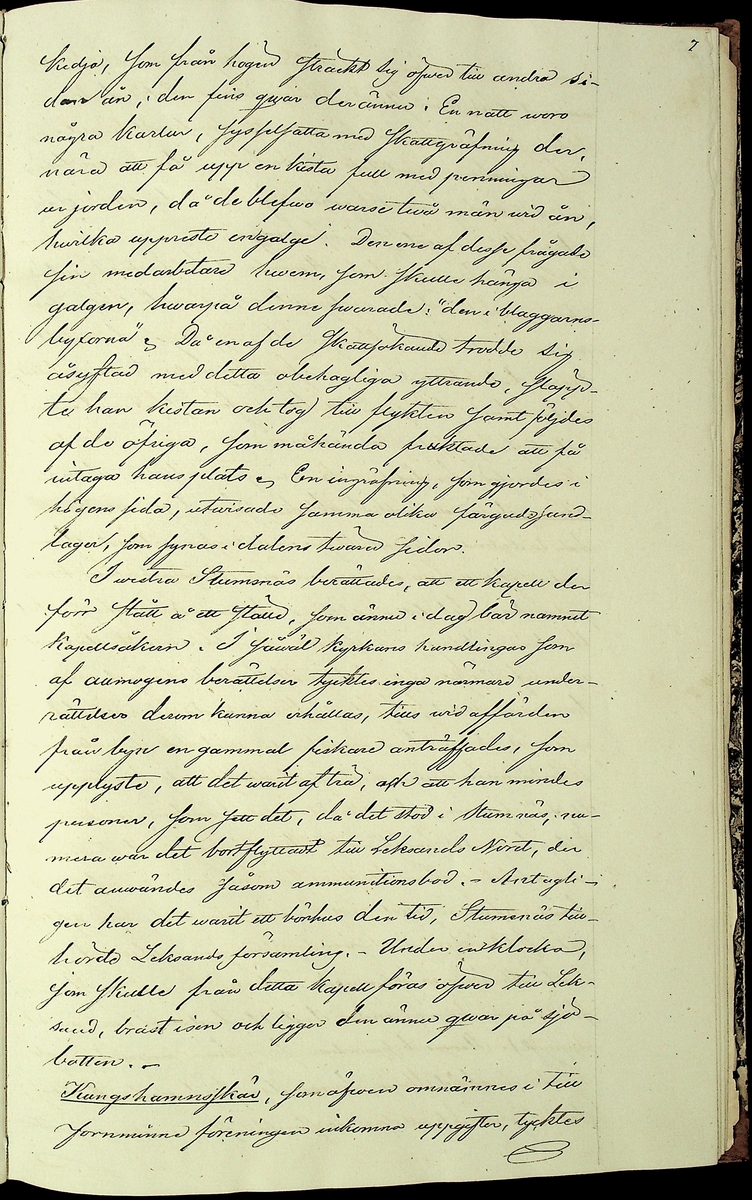 7
kedja, som från högen sträckt sig öfwer till andra si-
dan ån, den fins qwar der ännu. En natt woro
några karlar, sysselsatta med skattgräfning der,
nära att få upp en kista full med penningar
ur jorden, då de blefwo warse twå män wid ån,
hwilka uppreste en galge. Den ene af desse frågade
sin medarbetare hwem, som skulle hänga i
galgen, hwarpå denne swarade: "den i blaggarns-
byxorna". Då en af de skattsökande trodde sig
åsyftad med detta obehagliga yttrande, släpp-
te han kistan och tog till flykten samt följdes
af de öfriga, som måhända fruktade att få
intaga hans plats. En ingräfning, som gjordes i
högens sida, utwisade samma olika färgade sand-
lager, som synas i dalens twära sidor.
I westra Stumsnäs berättades, att ett kapell der
förr stått å ett ställe, som ännu i dag bär namnet
Kapellsåkern. I såwäl kyrkans handlingar som
af allmogens berättelser tycktes inga närmare under-
rättelser derom kunna erhållas, tills wid affärden
från byn en gammal fiskare anträffades, som
upplyste, att det warit af trä, och att han mindes
personer, som sett det, då det stod i Stumsnäs, nu-
mera war det bortflyttadt till Leksands Noret, der
det anwändes såsom ammunitionsbod. - Antagli-
gen har det warit ett bönhus den tid, Stumsnäs till-
hörde Leksands församling. - Under en klocka,
som skulle från detta kapell föras öfwer till Lek-
sand, brast isen och ligger den ännu qwar på sjö-
botten. -
Kungshamnsskär, som äfwen omnämnes i till
fornminne föreningen inkomna uppgifter, tycktes